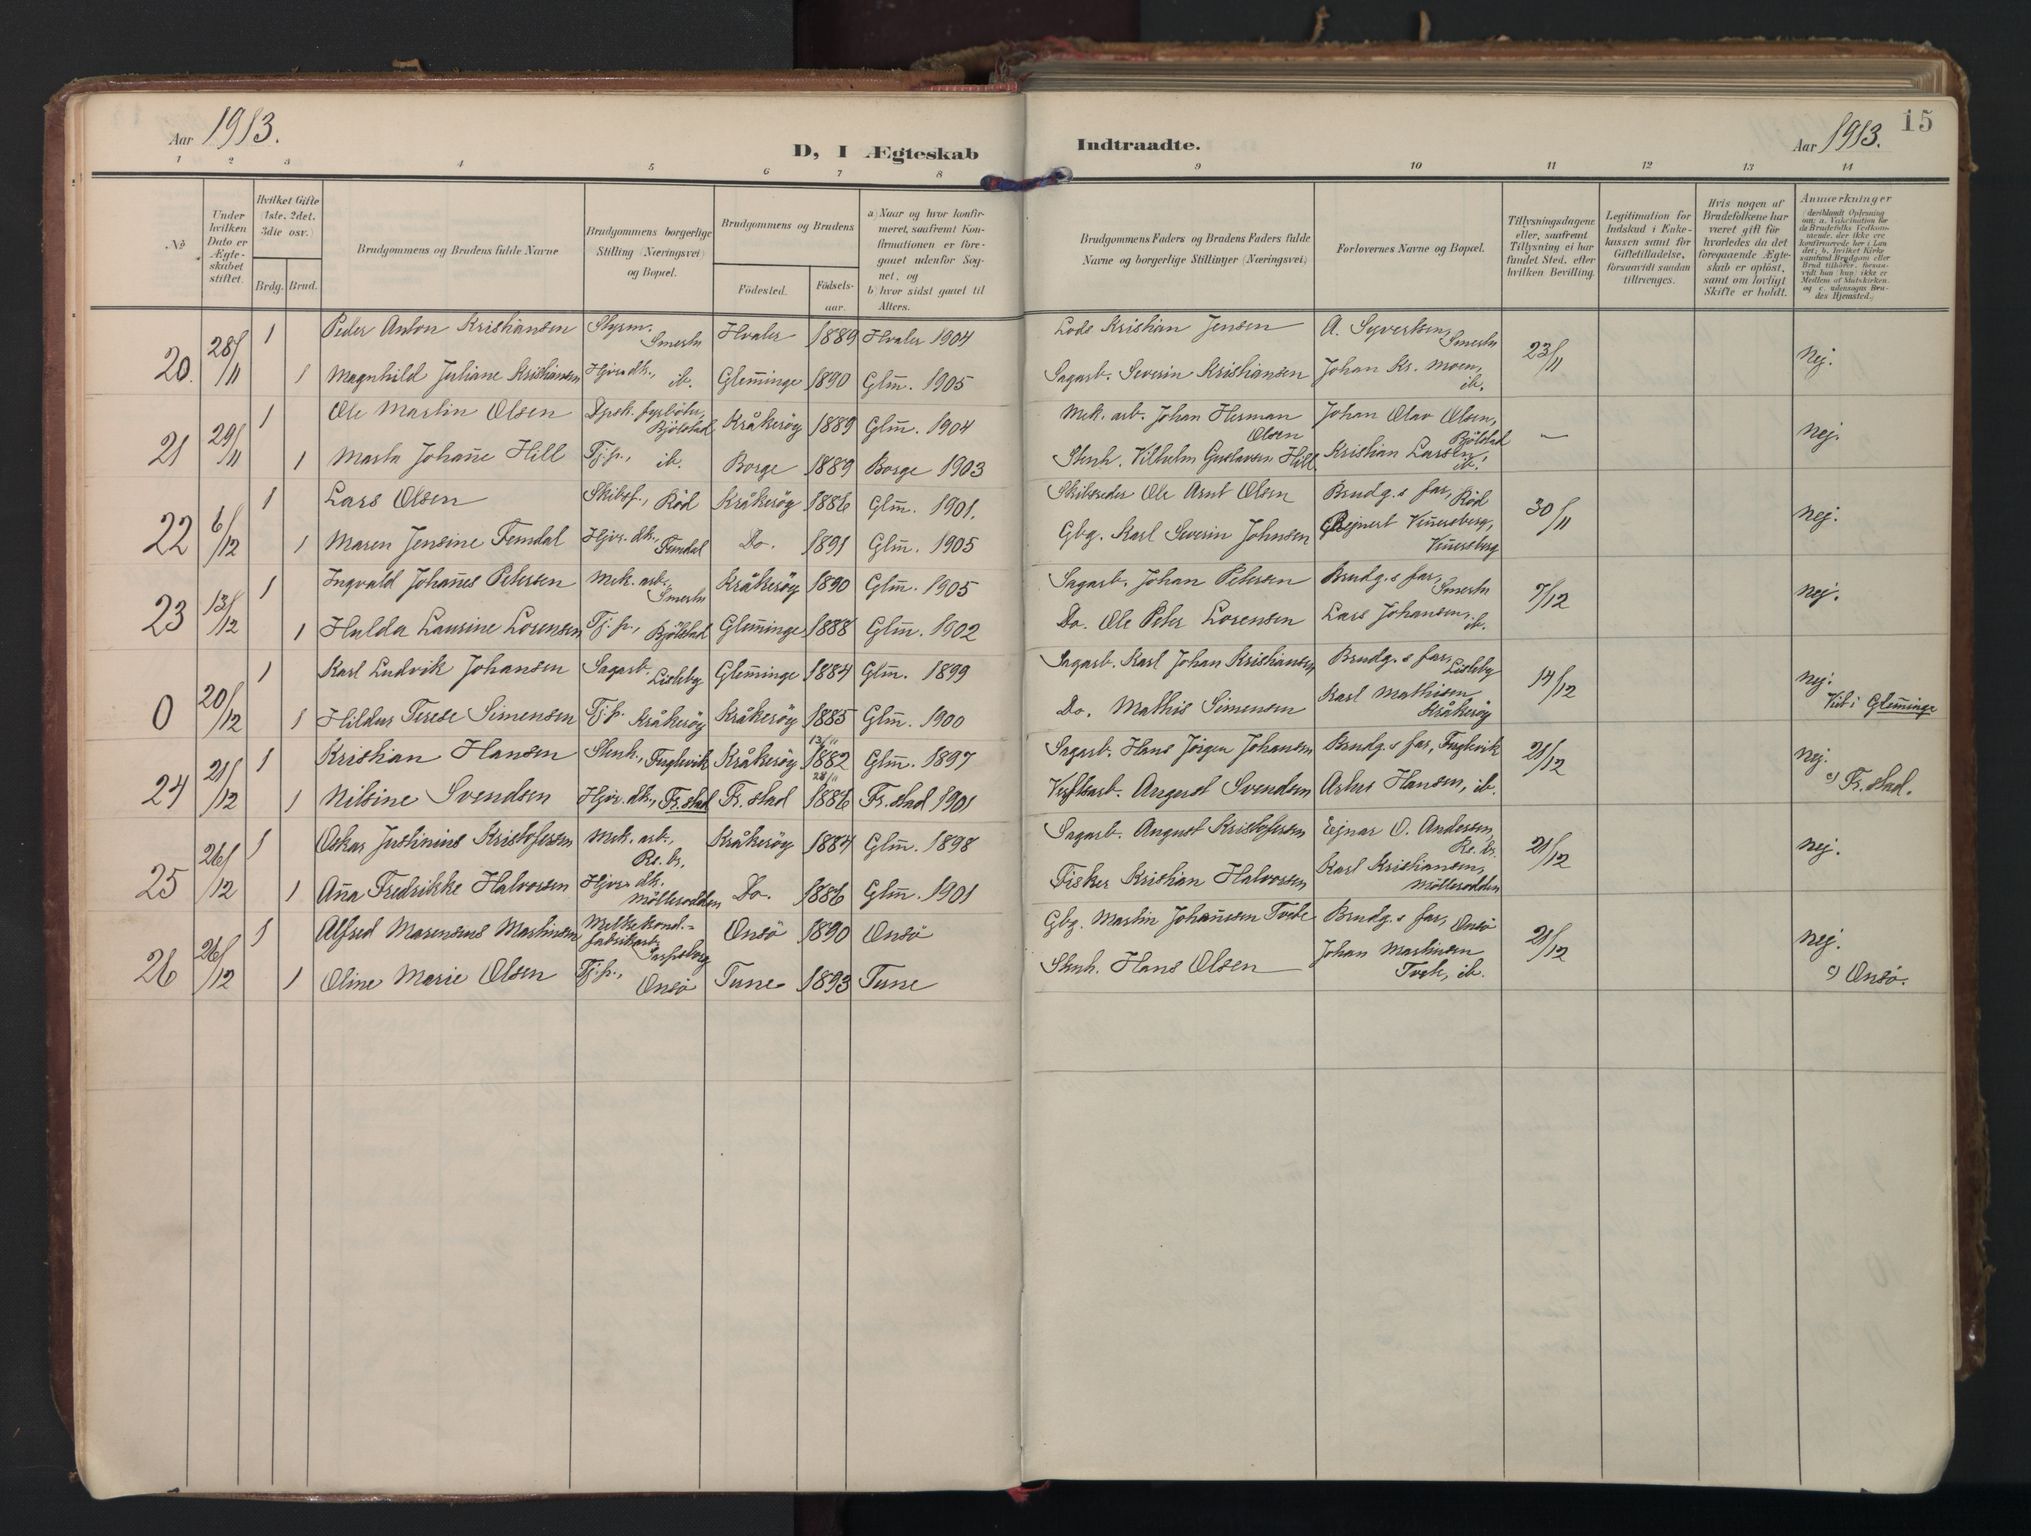 15
Aar 1913.
D, I Ægteskab
Indtraadte.
Aar 1913.
1 2 3 4 5 6 7 8 9 10 11 12 13 14
No
Under hvilken Dato er Ægteskabet stiftet.
Hvilket Gifte (1ste, 2det, 3die osv.)
Brdg. Brud.
Brudgommens og Brudens fulde Navne
Brudgommens borgerlige Stilling (Næringsvei) og Bopæl.
Brudgommens og Brudens
Födested.
Födsels-aar.
a) Naar og hvor konfirmeret, saafremt Konfirmationen er foregaaet udenfor Sognet, og
b) hvor sidst gaaet til Alters.
Brudgommens Faders og Brudens Faders fulde Navne og borgerlige Stillinger (Næringsvei)
Forlovernes Navne og Bopæl.
Tillysningsdagene eller, saafremt Tillysning ei har fundet Sted, efter hvilken Bevilling.
Legitimation for Indskud i Enkekassen samt for Giftetilladelse, forsaavidt saadan tiltrænges.
Hvis nogen af Brudefolkene har været gift før hvorledes da det foregaaende Ægteskab er oplöst, samt om lovligt Skifte er holdt.
Anmærkninger
(deriblandt Oplysning om: a. Vakcination for de Brudefolks Vedkommende, der ikke ere konfirmerede her i Landet; b. hvilket Kirkesamfund Brudgom eller Brud tilhörer, forsavidt han (hun) ikke er Medlem af Statskirken, og c. udensogns Brudes Hjemsted.)
20. 28/11 1 Peder Anton Kristiansen Styrm. Smertu Hvaler 1889 Hvaler 1904 Lods Kristian Jensen A. Syvertsen, Smertu 23/11 Nej.
1 Magnhild Juliane Kristiansen Hjv. dtr., ib. Glem̄inge 1890 Glm̄. 1905 Sagarb. Severin Kristiansen Johan Kr. Moen, ib.
21 29/11 1 Ole Martin Olsen Dpsk. fyrböter, Bjölstad Kråkeröy 1889 Glm̄. 1904 Mek. arb. Johan Herman Olsen Johan Olav Olsen, Bjölstad — Nej.
1 Marta Johan̄e Hill Tj. p., ib. Borge 1889 Borge 1903 Stenh. Vilhelm Gustavsen Hill Kristian Larsen, ib.
22 6/12 1 Lars Olsen Skibsf., Röd Kråkeröy 1886 Glm̄. 1901. Skibsreder Ole Arnt Olsen Brudg.s far, Röd 30/11 Nej.
1 Maren Jensine Femdal Hjv. dtr., Femdal Do. 1891 Glm̄. 1905 Gbg. Karl Severin Johnsen Rejnert Vin̄ersberg, Vin̄ersberg
23 13/12 1 Ingvald Johan̄es Petersen Mek. arb., Smertu Kråkeröy 1890 Glm̄. 1905 Sagarb. Johan Petersen Brudg.s far, Smertu 7/12 Nej.
1 Hulda Laurine Lorensen Tj. p., Bjölstad Glem̄inge 1888 Glm̄. 1902 Do. Ole Peter Lorensen Lars Johansen, ib.
0 20/12 1 Karl Ludvik Johansen Sagarb. Lisleby Glem̄inge 1884 Glm̄. 1899 Sagarb. Karl Johan Kristiansen Brudg.s far, Lisleby 14/12 Nej.
1 Hildur Terese Simensen Tj. p. Kråkeröy Kråkeröy 1885 Glm̄. 1900 Do. Mathis Simensen Karl Mathisen, Kråkeröy Viet i Glem̄inge
24 21/12 1 Kristian Hansen Stenh., Fuglevik Kråkeröy 13/11 1882 Glm̄. 1897 Sagarb. Hans Jörgen Johansen Brudg.s far, Fuglevik 21/12 Nej.
1 Nilsine Svendsen Hjv. dtr., Fr.stad Fr.stad 28/11 1886 Fr.stad 1901 Verftsarb. August Svendsen Artur Hansen, ib. c) Fr.stad.
25 26/12 1 Oskar Justinius Kristofersen Mek. arb., Re. br. Kråkeröy 1884 Glm̄. 1898 Sagarb. August Kristofersen Ejnar O. Andersen, Re. br. 21/12 Nej.
1 An̄a Fredrikke Halvorsen Hjv. dtr. Möllerodden Do. 1886 Glm̄. 1901 Fisker Kristian Halvorsen Karl Kristiansen, Möllerodden
26 26/12 1 Alfred Marensius Martinsen Melkekond.- fabrikarb. Sarpsborg Onsö 1890 Onsö Gbg. Martin Johan̄sen Tvete Brudg.s far, Onsö 21/12 Nej.
1 Oline Marie Olsen Tj. p., Onsö Tune 1893 Tune Stenh. Hans Olsen Johan Martinsen Tvete, ib. c) Onsö.